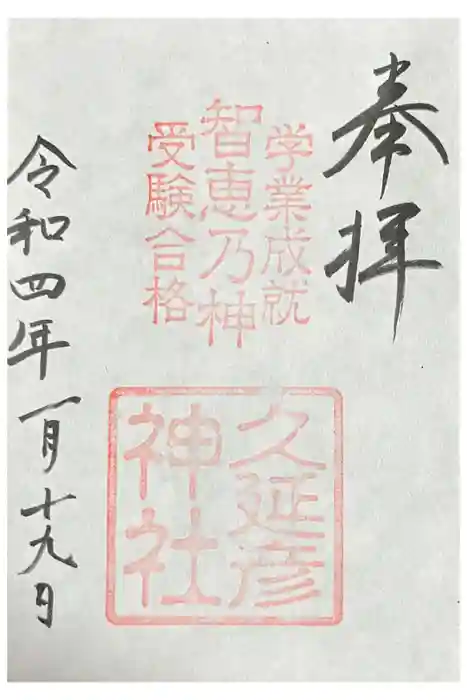 奉拝
学業成就
智恵乃神
受験合格
久延彦
神社
令和四年一月十九日